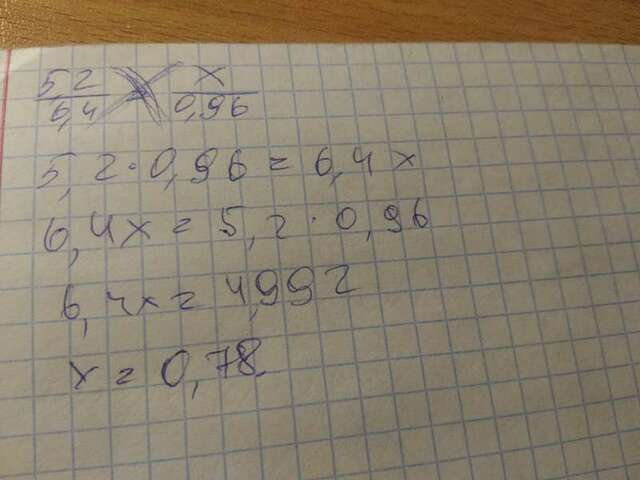 5,2/6,4 = x/0,96
5,2·0,96 = 6,4x
6,4x = 5,2·0,96
6,4x = 4,992
x = 0,78